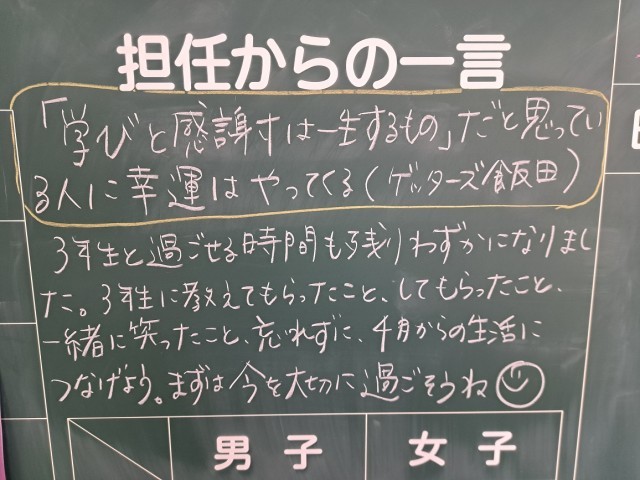 担任からの一言
「学びと感謝は一生するもの」だと思ってい
る人に幸運はやってくる(ゲッターズ飯田)
3年生と過ごせる時間も残りわずかになりまし
た。3年生に教えてもらったこと、してもらったこと、
一緒に笑ったこと、忘れずに、4月からの生活に
つなげよう。まずは今を大切に過ごそうね
男子 女子